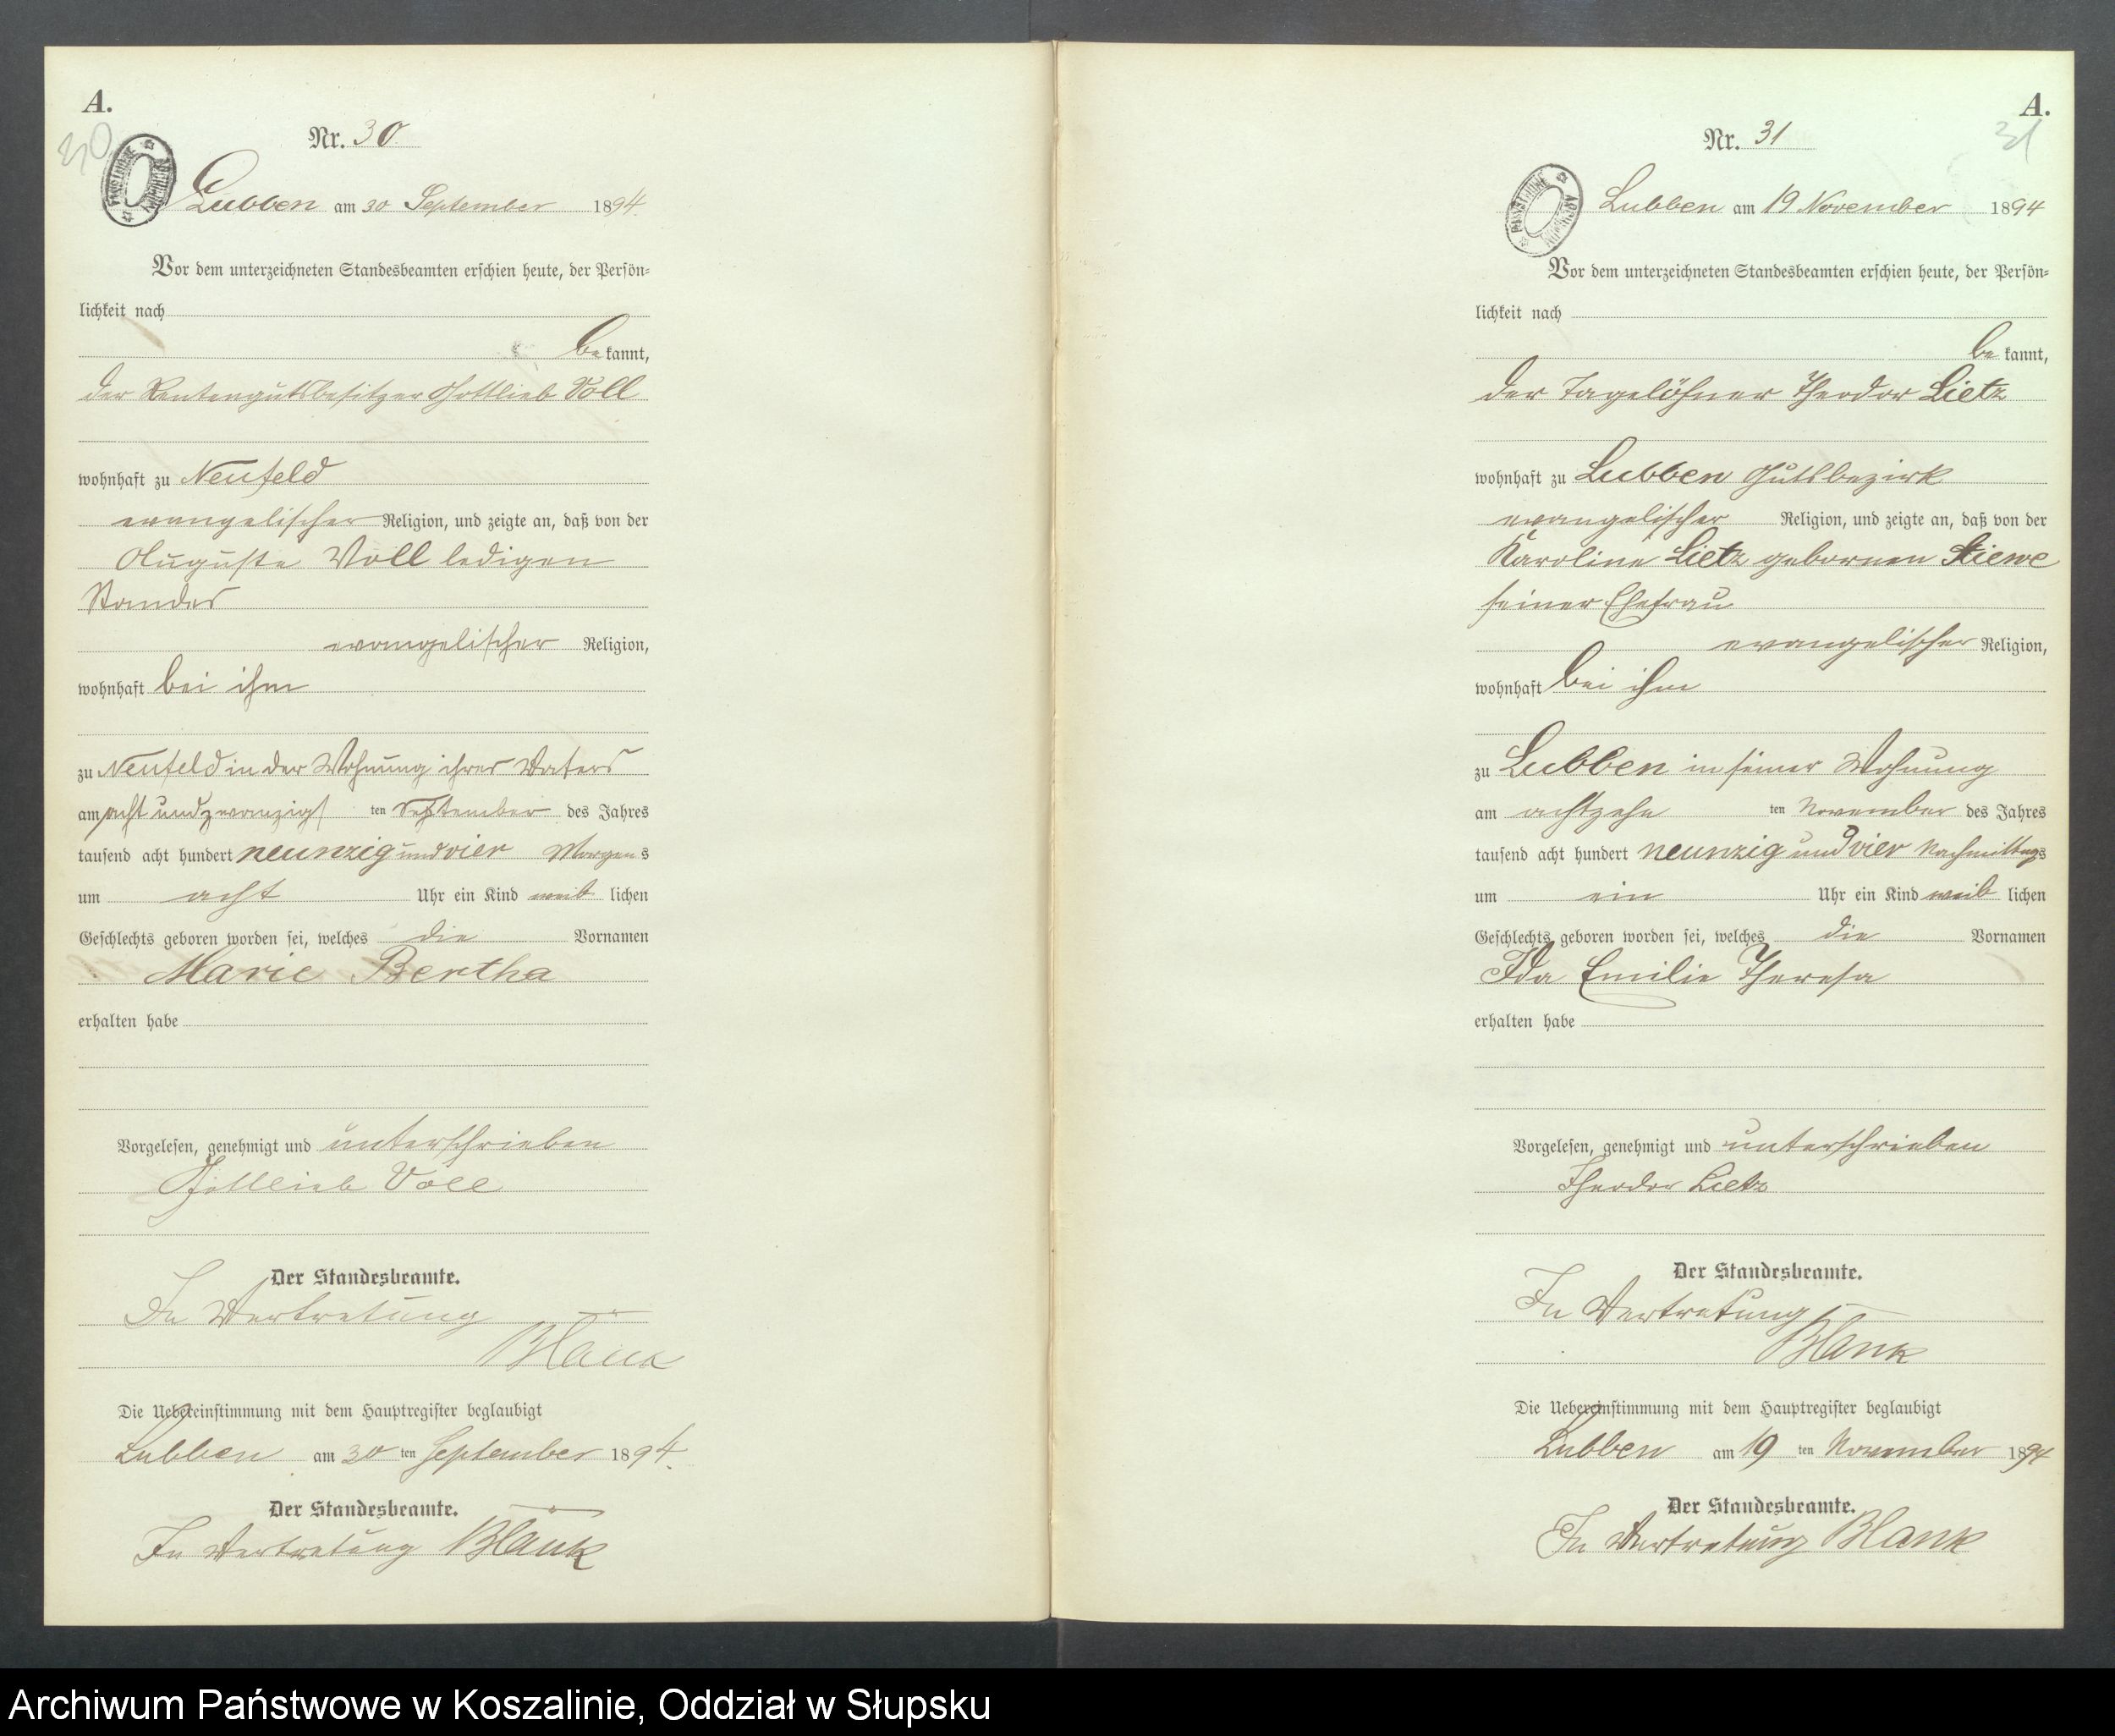 A.
30
Nr. 30
Lubben am 30 September 1894.
Vor dem unterzeichneten Standesbeamten erschien heute, der Persön=
lichkeit nach
be kannt,
der Rentengutsbesitzer Gottlieb Voll
wohnhaft zu Neufeld
evangelischer Religion, und zeigte an, daß von der
Auguste Voll ledigen
Standes
evangelischer Religion,
wohnhaft bei ihm
zu Neufeld in der Wohnung ihres Vaters
am acht und zwanzigs ten September des Jahres
tausend acht hundert neunzig und vier Morgens
um acht Uhr ein Kind weib lichen
Geschlechts geboren worden sei, welches die Vornamen
Marie Bertha
erhalten habe
Vorgelesen, genehmigt und unterschrieben
Gottlieb Voll
Der Standesbeamte.
In Vertretung
Blank
Die Uebereinstimmung mit dem Hauptregister beglaubigt
Lubben am 30 ten September 1894.
Der Standesbeamte.
In Vertretung Blank
A.
31
Nr. 31
Lubben am 19 November 1894
Vor dem unterzeichneten Standesbeamten erschien heute, der Persön=
lichkeit nach
be kannt,
der Tagelöhner Theodor Lietz
wohnhaft zu Lubben Gutsbezirk
evangelischer Religion, und zeigte an, daß von der
Karoline Lietz gebornen Stiewe
seiner Ehefrau
evangelischer Religion,
wohnhaft bei ihm
zu Lubben in seiner Wohnung
am achtzehn ten November des Jahres
tausend acht hundert neunzig und vier Nachmittags
um ein Uhr ein Kind weib lichen
Geschlechts geboren worden sei, welches die Vornamen
Ida Emilie Theresa
erhalten habe
Vorgelesen, genehmigt und unterschrieben
Theodor Lietz
Der Standesbeamte.
In Vertretung
Blank
Die Uebereinstimmung mit dem Hauptregister beglaubigt
Lubben am 19 ten November 1894
Der Standesbeamte.
In Vertretung Blank
Archiwum Państwowe w Koszalinie, Oddział w Słupsku